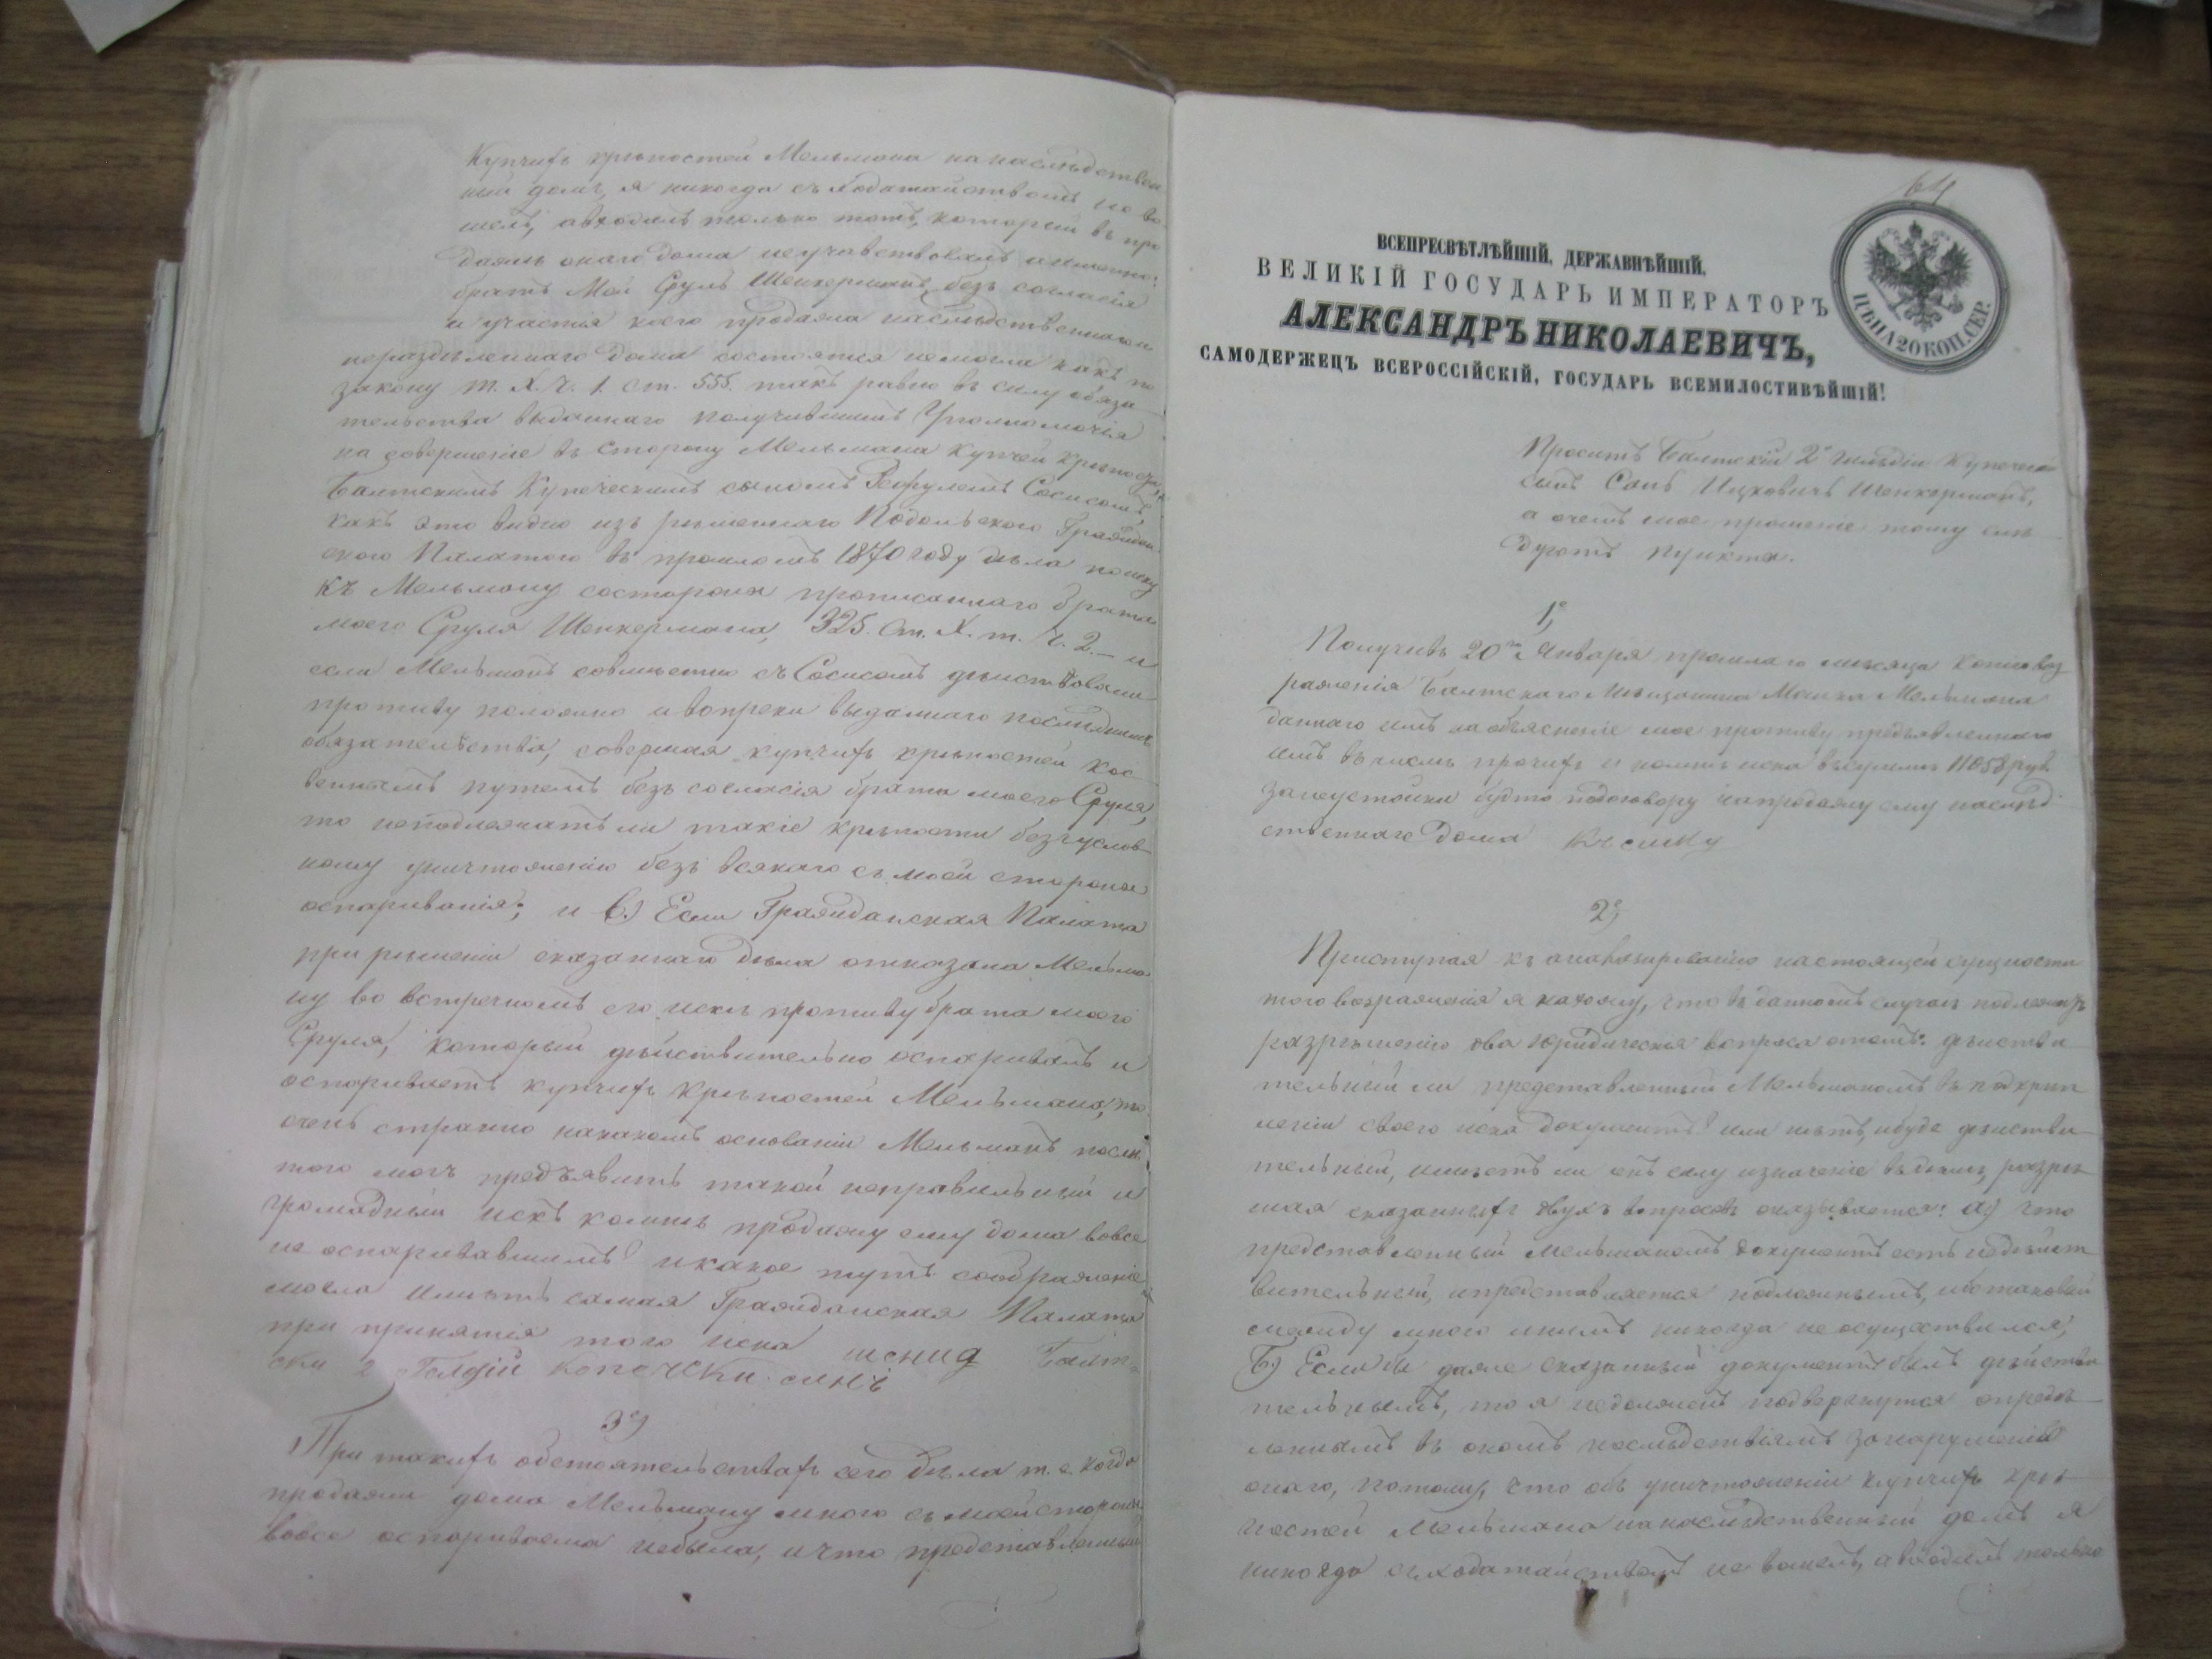 Купчихъ крѣпостей Мельмана на наслѣдствен
ный домъ, я никогда съ ходатайствомъ не во
шелъ, авходилъ только тотъ, который въ про
дажѣ онаго дома неучавствовалъ аименно:
братъ Мой Сруль Шенкерманъ, безъ согласія
и участія коего продажа наслѣдственнаго и
нераздѣленнаго дома состоятся немогла какъ по
закону т. X. ч. 1. ст. 555. такъ равно въ силу обяза
тельства выданнаго получившимъ Уполномочія
на совершеніе въ сторону Мельмана купчей крѣпости,
Балтскимъ Купеческимъ сыномъ Сосисомъ,
какъ это видно изъ рѣшеннаго Подольскою Граждан
скою Палатою въ прошломъ 1870 году дѣла поиску
къ Мельману состороны прописаннаго брата
моего Сруля Шенкермана, 325. Ст. X. т. Ч. 2. — и
если Мельманъ совмѣстно съ Сосисомъ дѣйствовали
противу положно и вопреки выданнаго послѣднимъ
обязательства, совершая купчихъ крѣпостей кос
веннымъ путемъ безъ согласія брата моего Сруля,
то неподлежатъ ли такіе крѣпости безъуслов
ному уничтоженію безъ всякаго съ моей стороны
оспариванія; и в.) Если Гражданская Палата
при рѣшеніи сказаннаго дѣла отказала Мельма
ну во встречномъ его искѣ противу брата моего
Сруля, который дѣйствительно оспаривалъ и
оспориваетъ купчихъ крѣпостей Мельмана, то
очень странно накакомъ основаніи Мельманъ послѣ
того могъ предъявить такой неправильный и
громадный искъ комнѣ продажу ему дома вовсе
не оспаривавшимъ? икакое тутъ соображеніе
могла имѣть самая Гражданская Палата
при принятія того иска Балт
ски 2 Гелдій копечски синъ
3е)
При такихъ обстоятельствахъ сего дѣла т. е. когда
продажи дома Мельману мною съ моей стороны
вовсе оспориваема небыла, ичто представленный
64
ВСЕПРЕСВѢТЛѢЙШІЙ, ДЕРЖАВНѢЙШІЙ,
ВЕЛИКІЙ ГОСУДАРЬ ИМПЕРАТОРЪ
АЛЕКСАНДРЪ НИКОЛАЕВИЧЪ,
САМОДЕРЖЕЦЪ ВСЕРОССІЙСКІЙ, ГОСУДАРЬ ВСЕМИЛОСТИВѢЙШІЙ!
ЦѢНА 20 КОП. СЕР.
Проситъ Балтскій 2й Гильдіи Купечес
сынъ Ицковичъ Шенкерманъ,
а очемъ мое прошеніе тому слѣ
дуютъ пункты.
1е)
Получивъ 20го Января прошлаго мѣсяца копію воз
раженія Балтскаго Мѣщанина Мельмана
даннаго имъ на объясненіе мое противу предъявленнаго
имъ въчислѣ прочихъ и комнѣ иска въсуммѣ 11058 руб.
занеустойки будто подоговору напродажу ему наслѣд
ственнаго дома Къ сему
2е)
Приступая къ анализированію настоящей сущности
того возраженія я нахожу, что въ данномъ случаѣ подлежитъ
разрѣшенію два юридическія вопроса отомъ: дѣйстви
тельный ли представленный Мельманомъ въ подкрѣп
леніи своего иска документъ? или нѣтъ, ибуде дѣйстви
тельный, имѣетъ ли онъ силу изначеніе въ дѣлѣ, разрѣ
шая сказанныхъ двухъ вопросовъ оказывается: а) что
представленный Мельманомъ документъ есть недѣйст
вительный, ипредставляется подложнымъ, ибо таковый
смежду мною инимъ никогда не осуществился,
б) Еслибы даже сказанный документъ былъ дѣйстви
тельнымъ, то я недолженъ подвергнутся опредѣ
леннымъ въ ономъ послѣдствіямъ занарушеніе
онаго, потому, что объ уничтоженіи купчихъ крѣ
постей Мельмана нанаслѣдственный домъ я
никогда съходатайствомъ не вошелъ, авходилъ только